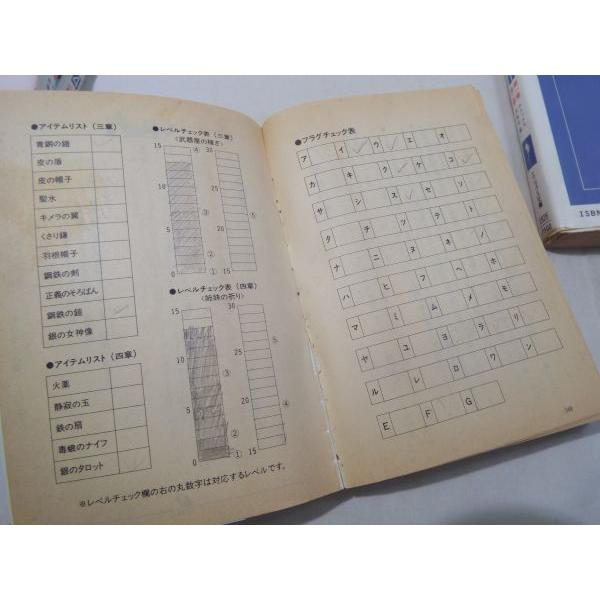 ●アイテムリスト（三章）
青銅の鎧
皮の盾
皮の帽子
聖水
キメラの翼
くさり鎌
羽根帽子
鋼鉄の剣
正義のそろばん
鋼鉄の鎧
銀の女神像
●アイテムリスト（四章）
火薬
静寂の玉
鉄の扇
毒蛾のナイフ
銀のタロット
●レベルチェック表（三章）
（武器屋の稼ぎ）
15 ④ 30
10 25
③ ⑤
5 20
②
0 ① 15
●レベルチェック表（四章）
（姉妹の祈り）
15 30
10 25 ⑤
③
5 20 ④
②
0 ① 15
※レベルチェック欄の右の丸数字は対応するレベルです。
●フラグチェック表
ア イ ウ エ オ
カ キ ク ケ コ
サ シ ス セ ソ
タ チ ツ テ ト
ナ ニ ヌ キ ノ
ハ ヒ フ ヘ ホ
マ ミ ム メ モ
ヤ ユ ヨ ラ リ
ル レ ロ ワ ン
E F G
ISBN